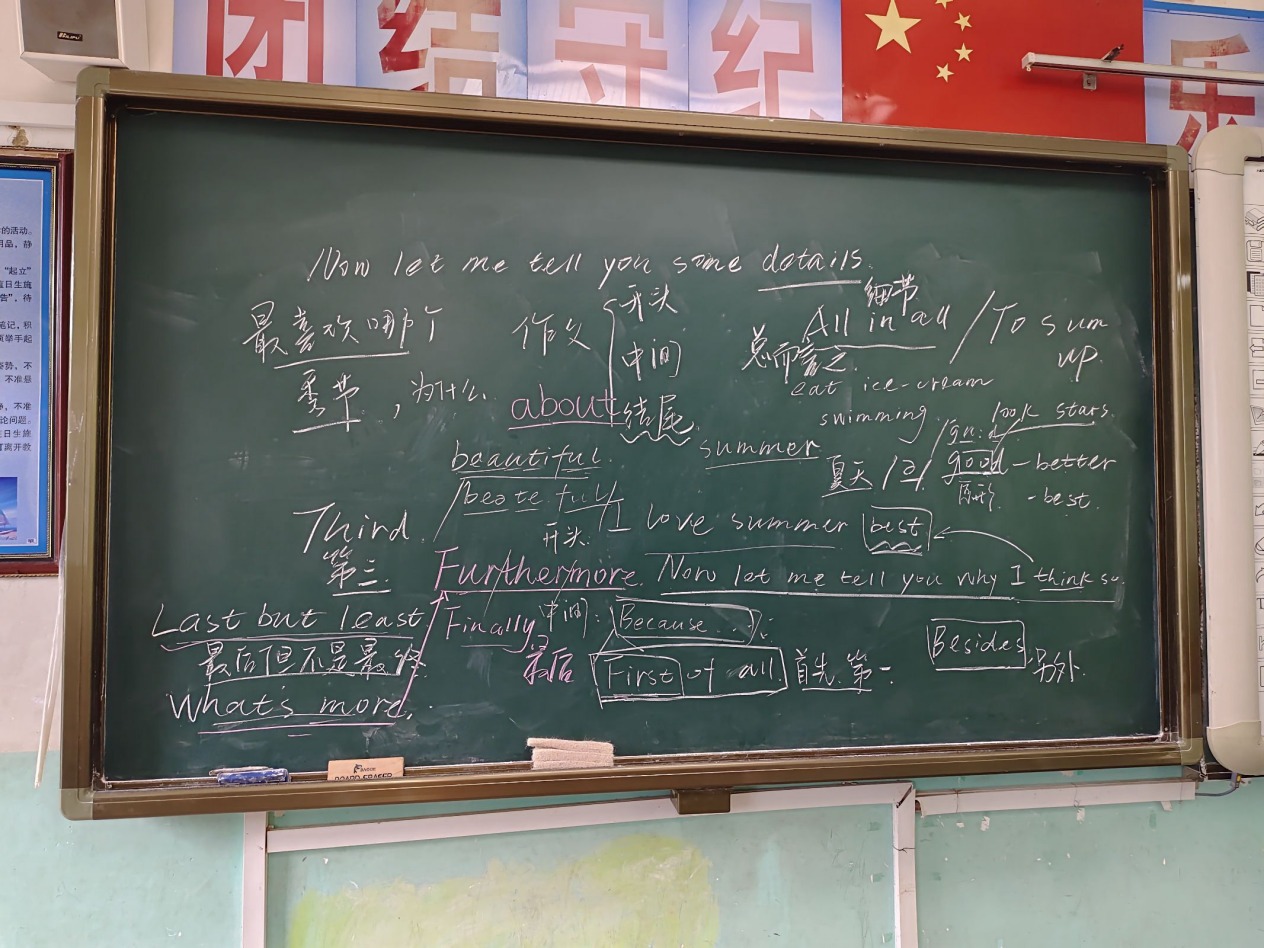 团结守纪
乐
Now let me tell you some details.
细节
最喜欢哪个
季节，为什么
作文
开头
中间
结尾
about
总而言之
All in all / To sum up.
eat ice-cream
swimming
look stars.
beautiful.
summer
夏天
good - better
原形 - best.
Third.
第三.
开头
I love summer best
Furthermore. Now let me tell you why I think so.
Last but least
Finally
最后
中间: Because...
最后但不是最终
First of all. 首先.第一
Besides 另外.
What's more,
BOARD ERASER
的活动。
用品，静
“起立”
值日生施
告”，待
笔记，积
举手起
姿势，不
不准悬
不准
论问题。
日生施
离开教